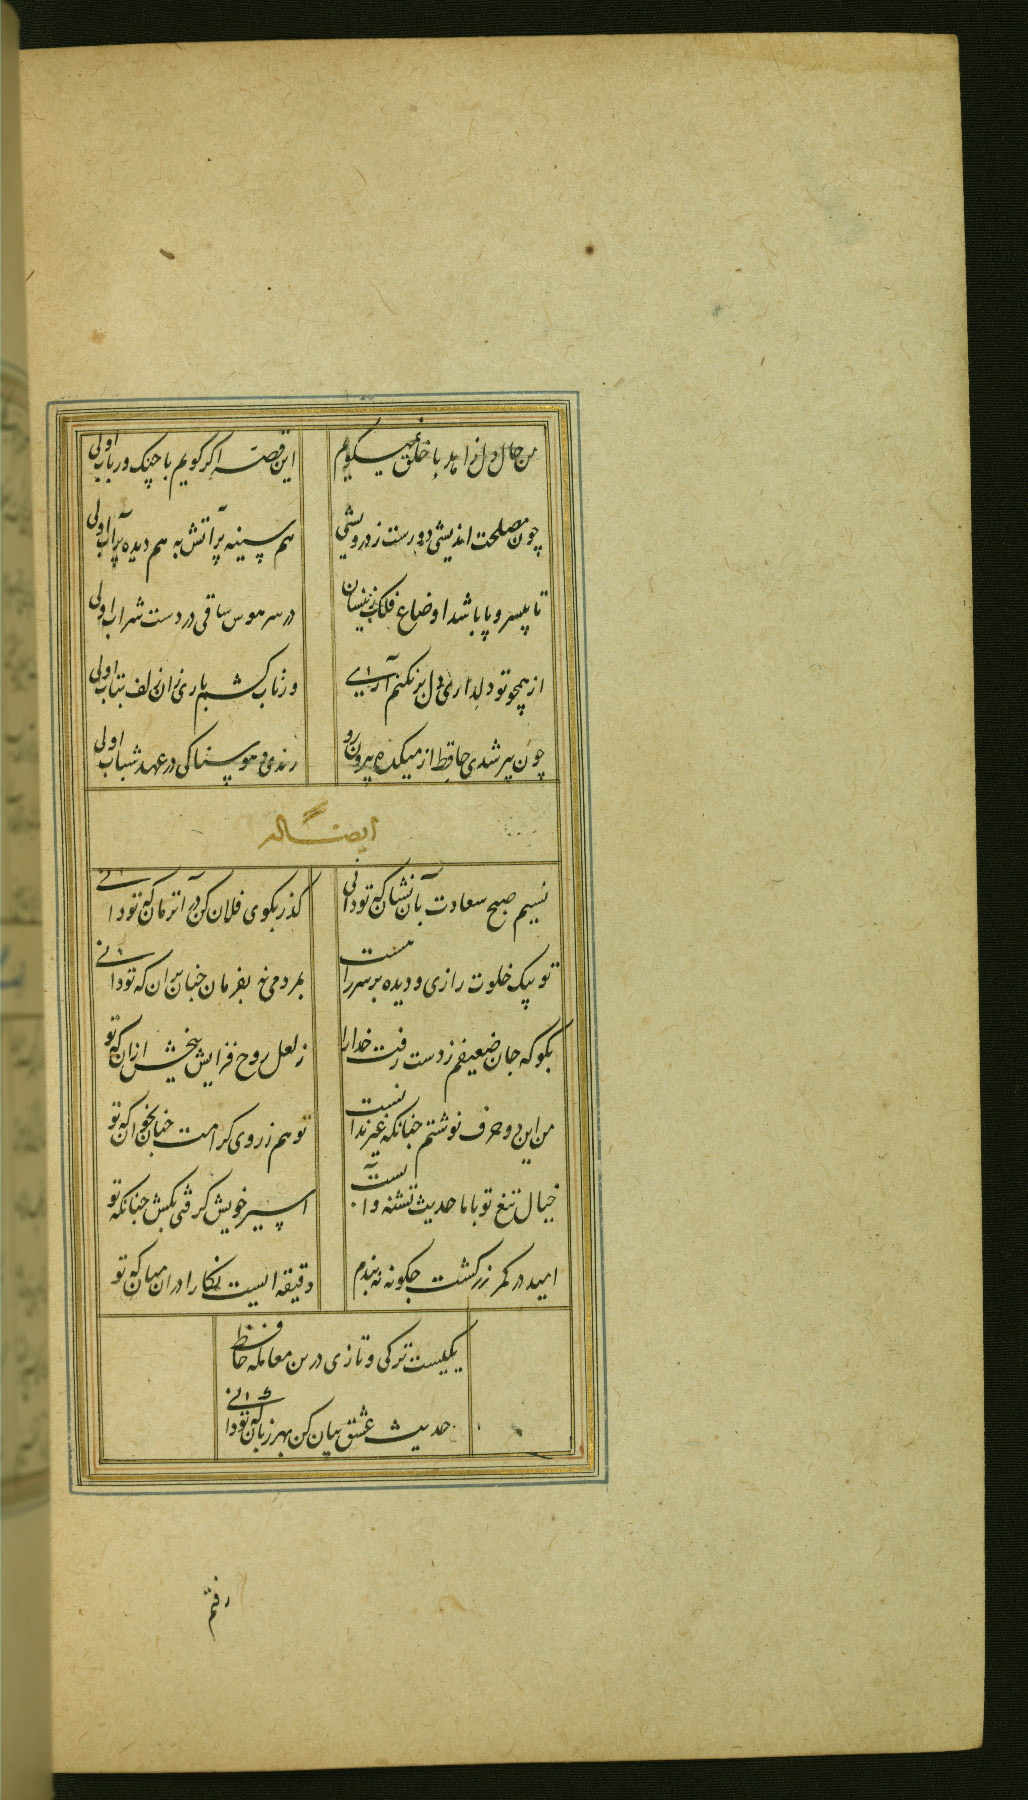 من حال دل زاهد با خلق نمیکویم این قصه اکر کویم با چنک و رباب اولی
چون مصلحت اندیشی دورست ز درویشی هم سینه پر آتش به هم دیده پر آب اولی
تا بیسر و پا باشد اوضاع فلک زینسان در سر هوس ساقی در دست شراب اولی
از همچو تو دلداری دل بر نکنم آری ور تاب کشم باری زان زلف بتاب اولی
چون پیر شدی حافظ از میکده بیرون رو رندی و هوسناکی در عهد شباب اولی
ایضا له
نسیم صبح سعادت بآن نشان که تو دانی کذر بکوی فلان کن در آن زمان که تو دانی
تو پیک خلوت رازی و دیده بر سر راهست بمردمی نه بفرمان چنان بران که تو دانی
بکو که جان ضعیفم ز دست رفت خدا را ز لعل روح فزایش ببخش ازان که تو
من این دو حرف نوشتم چنانکه غیر ندانست تو هم ز روی کرامت چنان بخوان که تو
خیال تیغ تو با ما حدیث تشنه و آبست اسیر خویش کرفتی بکش چنانکه تو
امید در کمر زرکشت چکونه نه بندم دقیقه ایست نکارا دران میان که تو
یکیست ترکی و تازی درین معامله حافظ
حدیث عشق بیان کن بهر زبان که تو دانی
رفتم